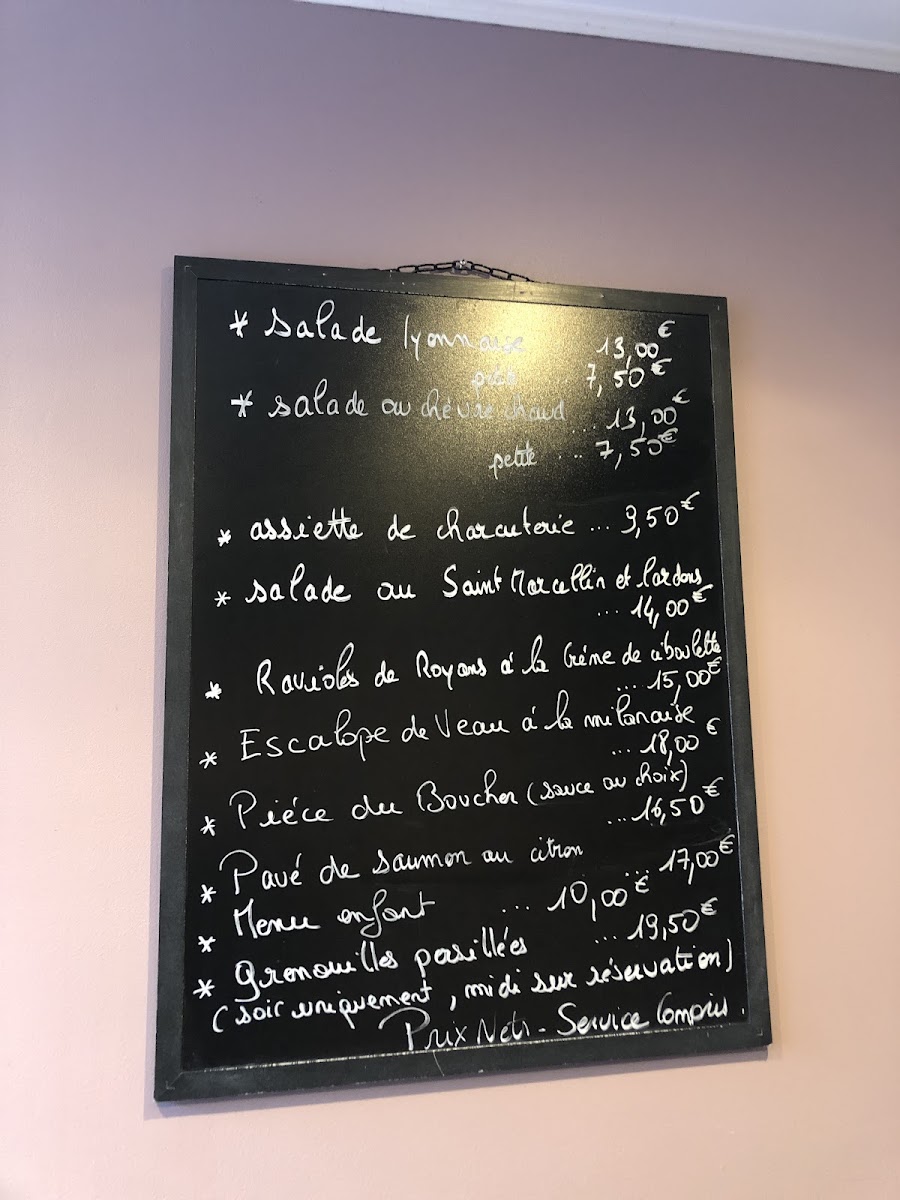 * salade lyonnaise 13,00€
petite 7,50€
* salade au chèvre chaud ... 13,00€
petite ... 7,50€
* assiette de charcuterie ... 9,50€
* salade au Saint Marcellin et lardons
... 14,00€
* Ravioles de Royans à la Crème de ciboulette
... 15,00€
* Escalope de Veau à la milanaise
... 18,00€
* Pièce du Boucher (sauce au choix)
... 16,50€
* Pavé de saumon au citron ... 17,00€
* Menu enfant ... 10,00€
* Grenouilles persillées ... 19,50€
(soir uniquement, midi sur réservation)
Prix Nets - Service Compris.